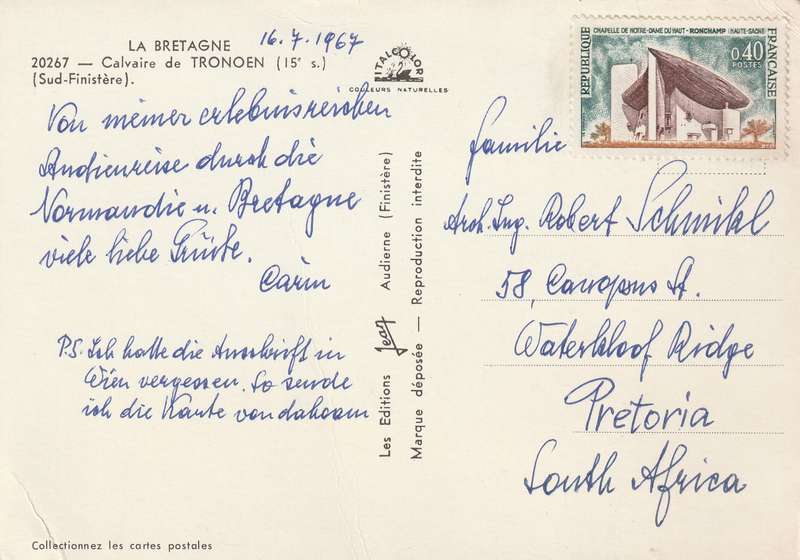 LA BRETAGNE
16.7.1967
20267 — Calvaire de TRONOEN (15e s.)
(Sud-Finistère).
ITALCOLOR
COULEURS NATURELLES
Von meiner erlebnisreichen
Studienreise durch die
Normandie u. Bretagne
viele liebe Grüße.
Carin
P.S. Ich hatte die Anschrift in
Wien vergessen. So sende
ich die Karte von daheim
Les Editions Jean Audierne (Finistère)
Marque déposée — Reproduction interdite
REPUBLIQUE FRANÇAISE
CHAPELLE DE NOTRE-DAME DU HAUT - RONCHAMP (HAUTE-SAÔNE)
0,40
POSTES
Familie
Arch. Ing. Robert Schmikl
58, Campus St.
Waterkloof Ridge
Pretoria
South Africa
Collectionnez les cartes postales